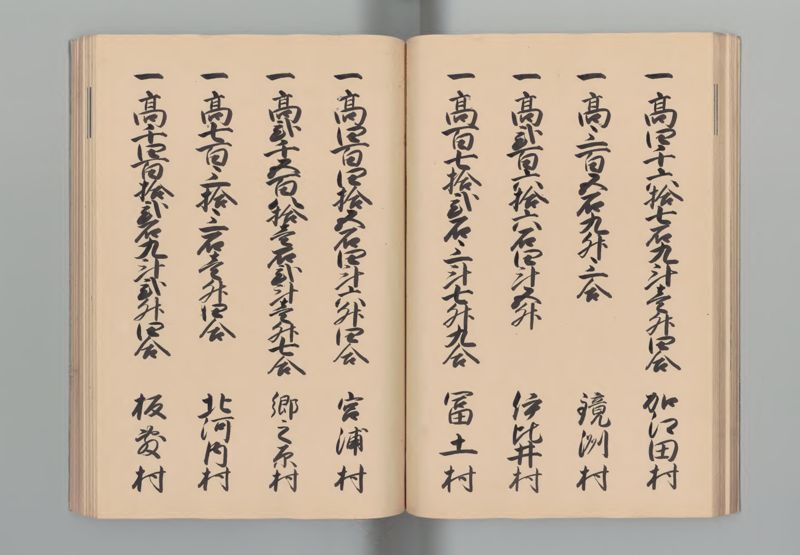 一高四千六拾七石九斗壱升四合 加江田村
一高三百五石九升三合 鏡洲村
一高弐百六拾六石四斗五升 伊比井村
一高百七拾弐石三斗七升九合 冨土村
一高四百四拾五石四斗六升四合 宮浦村
一高弐千五百八拾壱石弐斗壱升七合 郷之原村
一高七百三拾三石壱升四合 北河内村
一高千四百拾弐石九斗弐升四合 板敷村